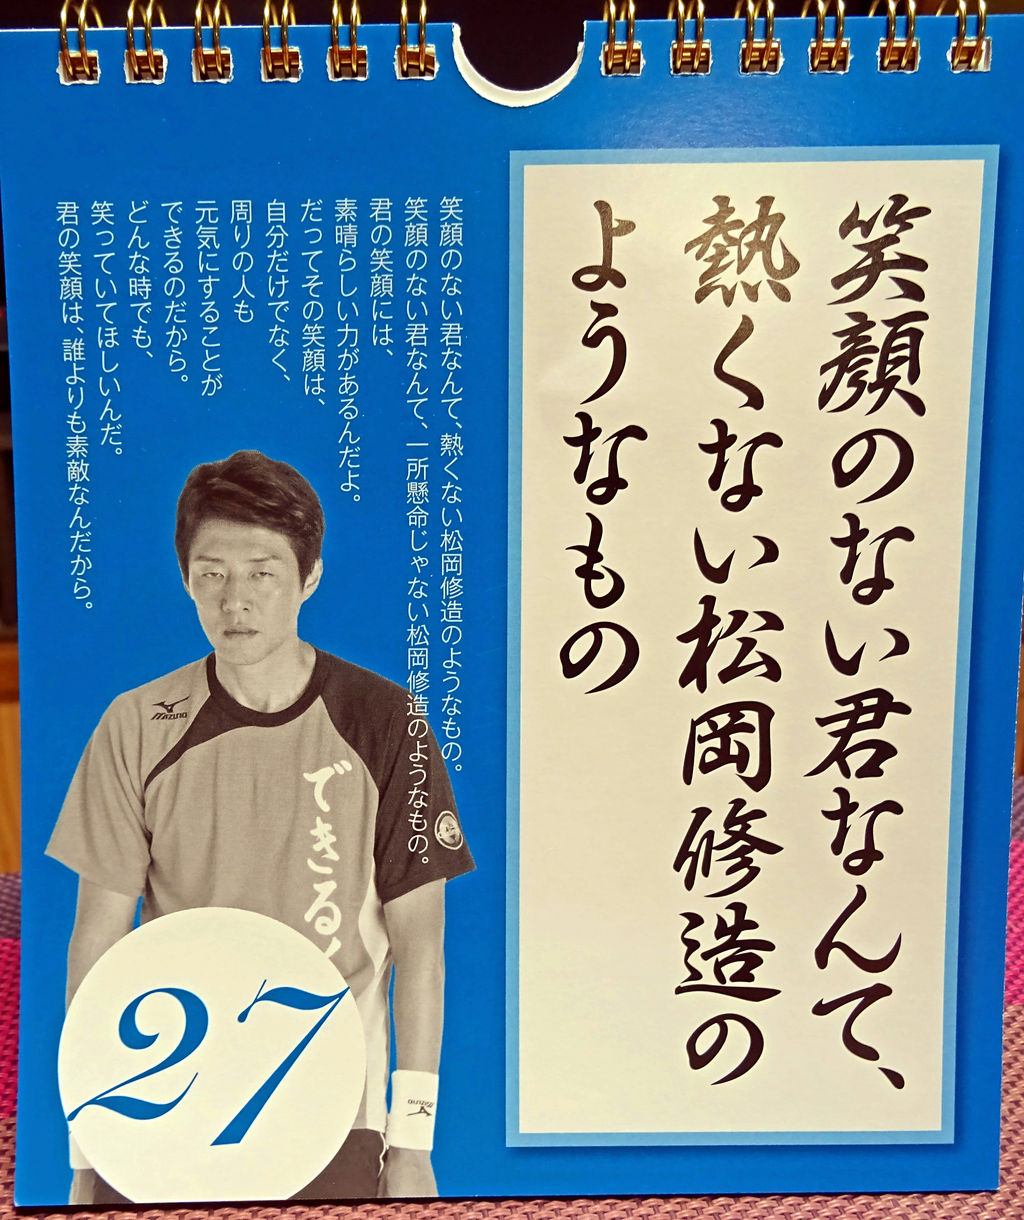 笑顔のない君なんて、
熱くない松岡修造の
ようなもの
笑顔のない君なんて、熱くない松岡修造のようなもの。
笑顔のない君なんて、一所懸命じゃない松岡修造のようなもの。
君の笑顔には、
素晴らしい力があるんだよ。
だってその笑顔は、
自分だけでなく、
周りの人も
元気にすることが
できるのだから。
どんな時でも、
笑っていてほしいんだ。
君の笑顔は、誰よりも素敵なんだから。
MIZUNO
できる
27
MIZUNO